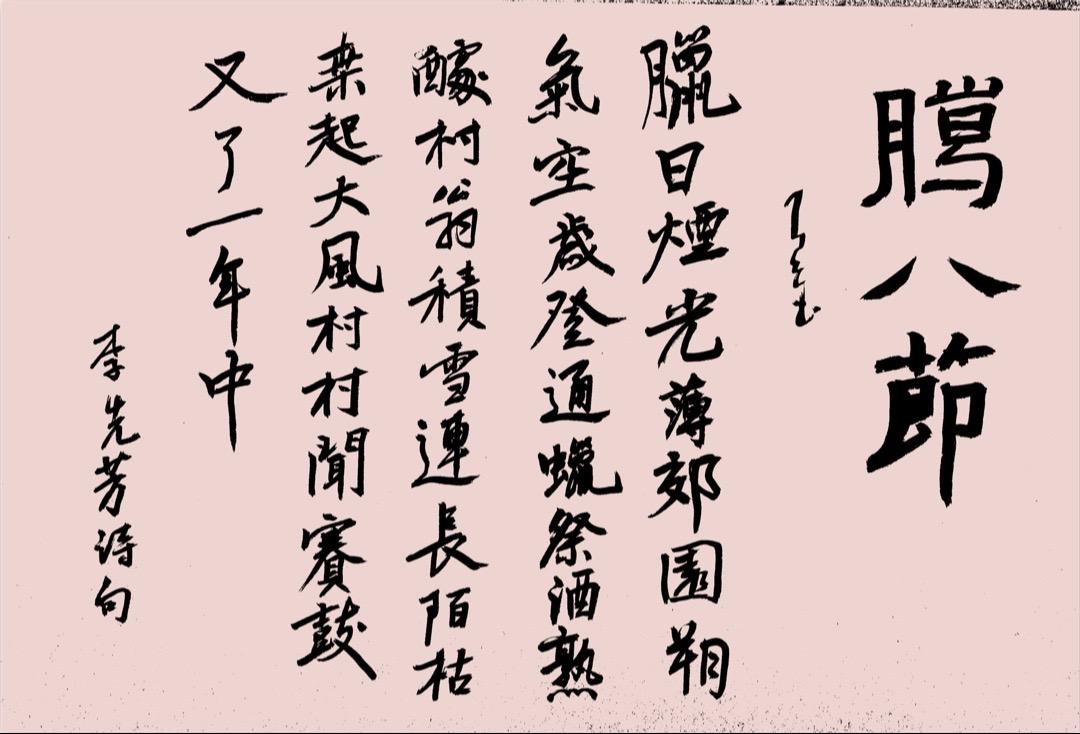 臈八節
臘日煙光薄郊園朔
氣空歲登通蠟祭酒熟
醵村翁積雪連長陌枯
桒起大風村村聞賽鼓
又了一年中
李先芳诗句